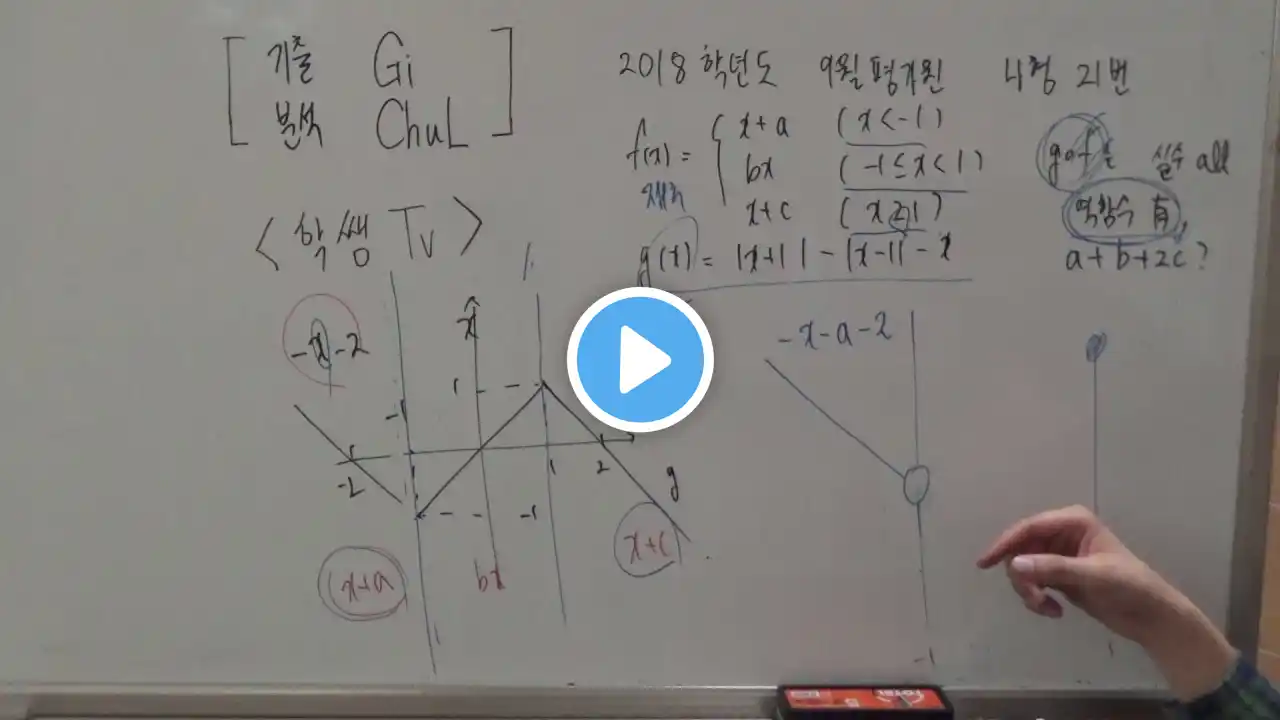 [ 기출 Gi
분석 ChuL ]
< 학쌤 Tv >
2018 학년도 9월 평가원 나형 21번
f(x) = { x+a (x<-1)
bx (-1≤x<1)
x+c (x≥1)
g(x) = |x+1| - |x-1| - x
g∘f는 실수 all
역함수 有,
a+b+2c?
-x-2
x
1
-1
-2
-1
1
2
g
x+a
bx
x+c
-x-a-2
-1
1